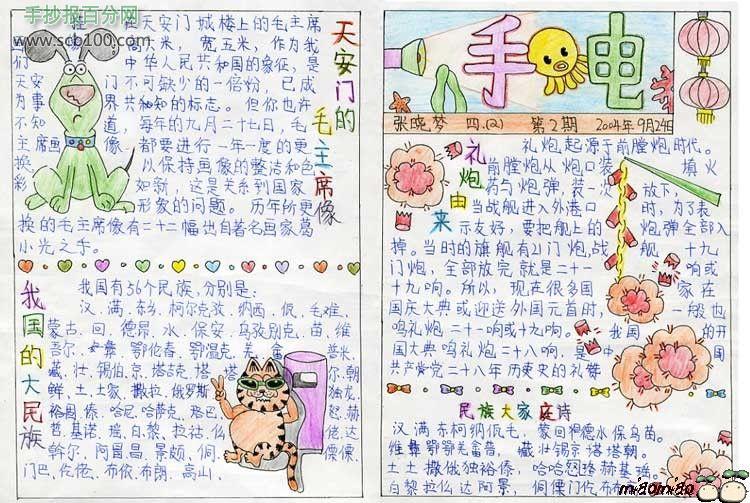 手抄报百分网
www.scb100.com
天安门的毛主席像
挂在天安门城楼上的毛主席
像高六米,宽五米,作为我
们中华人民共和国的象征,是
天安门不可缺少的一倍份,已成
为事界共和知的标志。但你也许
不知道,每年的九月二十七日,毛
主席画像,都要进行一年一度的更
换,以保持画像的整洁和色
彩如新,这是关系到国家
形象的问题。历年所更
换的毛主席像有二十二幅出自著名画家葛
小光之手。
我国的大民族
我国有56个民族,分别是:
汉、满、东乡、柯尔克孜、纳西、佤、毛难、
蒙古、回、德昂、水、保安、乌孜别克、苗、维
吾尔、彝、鄂伦春、鄂温克、
普米、
藏、壮、锡伯、京、塔吉克、塔
尔、朝
鲜、土、土家、撒拉、俄罗斯
独龙、
裕固、傣、哈尼、哈萨克、
怒、赫
哲、基诺、瑶、白、黎、拉祜、
佬、达
斡尔、阿昌、景颇、侗、
傈僳、
门巴、仡佬、布依、布朗、高山、
手电
张晓梦 四.(2) 第2期 2004年9月24日
礼炮由来
礼炮,起源于前膛炮时代。
前膛炮从炮口装填火
药与炮弹,装一
放下,
当战舰进入外港口时,为了表
示友好,要把舰上的炮弹全部入
掉。当时的旗舰有21门炮,战舰十九
门炮,全部放完就是二十一响或
十九响。所以,现在很多国家在
国庆大典或迎送外国元首时,一般也
鸣礼炮二十一响或十九响。我国的开
国大典鸣礼炮二十八响,是中国
共产党二十八年历史的礼赞
民族大家庭诗
汉满东柯纳佤毛,蒙回德水保乌苗。
维彝鄂鄂羌畲普,藏壮锡京塔塔朝。
土土撒俄独裕傣,哈哈怒珞赫基瑶。
白黎拉仫达阿景,侗傈门仡布布
miaomiao